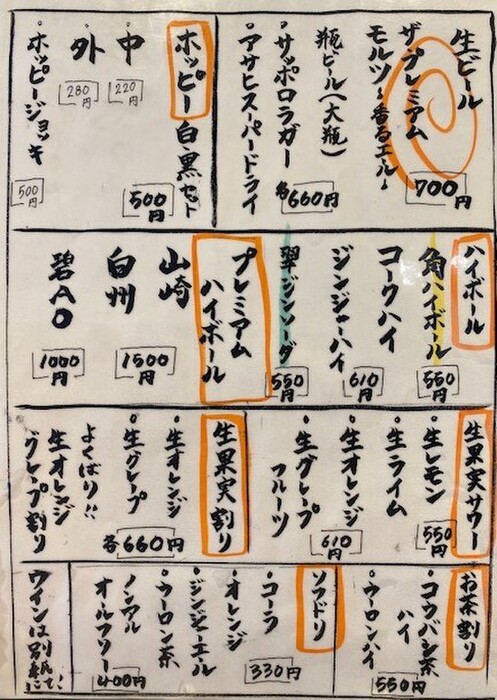 生ビール
ザ・プレミアム
モルツ〜香るエール〜
700円
瓶ビール(大瓶)
・サッポロラガー
・アサヒスーパードライ
各660円
ホッピー 白・黒セット
500円
中
220円
外
280円
・ホッピージョッキ
500円
ハイボール
角ハイボール
550円
コークハイ
ジンジャーハイ
610円
翠ジンソーダ
550円
プレミアム
ハイボール
山崎
白州
1500円
碧AO
1000円
生果実サワー
・生レモン
550円
・生ライム
・生オレンジ
・生グレープ
フルーツ
610円
生果実割り
・生オレンジ
・生グレープ
各660円
よくばり!!
生オレンジ
グレープ割り
お茶割り
・コウバシ茶
ハイ
・ウーロンハイ
550円
ソフドリ
・コーラ
・オレンジ
・ジンジャーエール
・ウーロン茶
330円
・ノンアル
オールフリー
400円
ワインは別紙に!